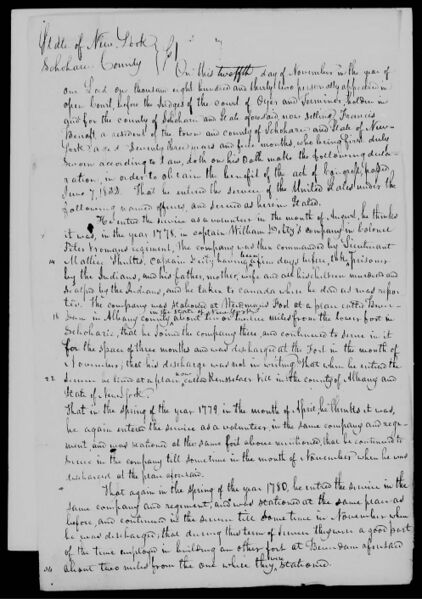 State of New York
Schoharie County } SS
On this twelfth day of November in the year of
our Lord one thousand eight hundred and thirty two personally appeared in
open Court, before the Judges of the court of Oyer and Terminer, holden in
and for the county of Schoharie and State aforesaid now setting, Francis
a resident of the town and county of Schoharie and State of New-
York aged Seventy three years and five months, who being first duly
sworn according to law, doth on his Oath make the following decla-
ration, in order to obtain the benefit of the act of Congress, passed
June 7, 1832. That he entered the service of the United States under the
following named officers, and served as herein stated.
He entered the service as a volunteer in the month of August, he thinks
it was, in the year 1778, in captain William company in Colonel
Peter Vromans regiment, the company was then commanded by Lieutenant
captain having been a few days before, taken Prisoner
by the Indians, and his father, mother, wife and all his brethren murdered and
scalped by the Indians, and he taken to canada where he died as was repor-
ted. The company was stationed at Fort at a place called Beaver-
dam in Albany county in the State of New York about ten or twelve miles from the lower fort in
Schoharie, that he joined the company there, and continued to serve in it
for the space of three months and was discharged at the Fort in the month of
November, that his discharge was not in writing. That when he entered the
22 service he lived at a place, now called Rensselaer Ville in the county of Albany and
State of New York.
That in the spring of the year 1779 in the month of April, he thinks it was,
he again entered the service as a volunteer, in the same company and regi-
ment, and was stationed at the same fort above mentioned, that he continued to
serve in the company till sometime in the month of November when he was
discharged at the place aforesaid.
That again in the spring of the year 1780, he entered the service in the
same company and regiment, and was stationed at the same place as
before, and continued in the service till some time in November when
he was discharged, that during this term of service they were a good part
of the time employed in building an other fort at Beaverdam aforesaid
about two miles from the one where they were stationed.